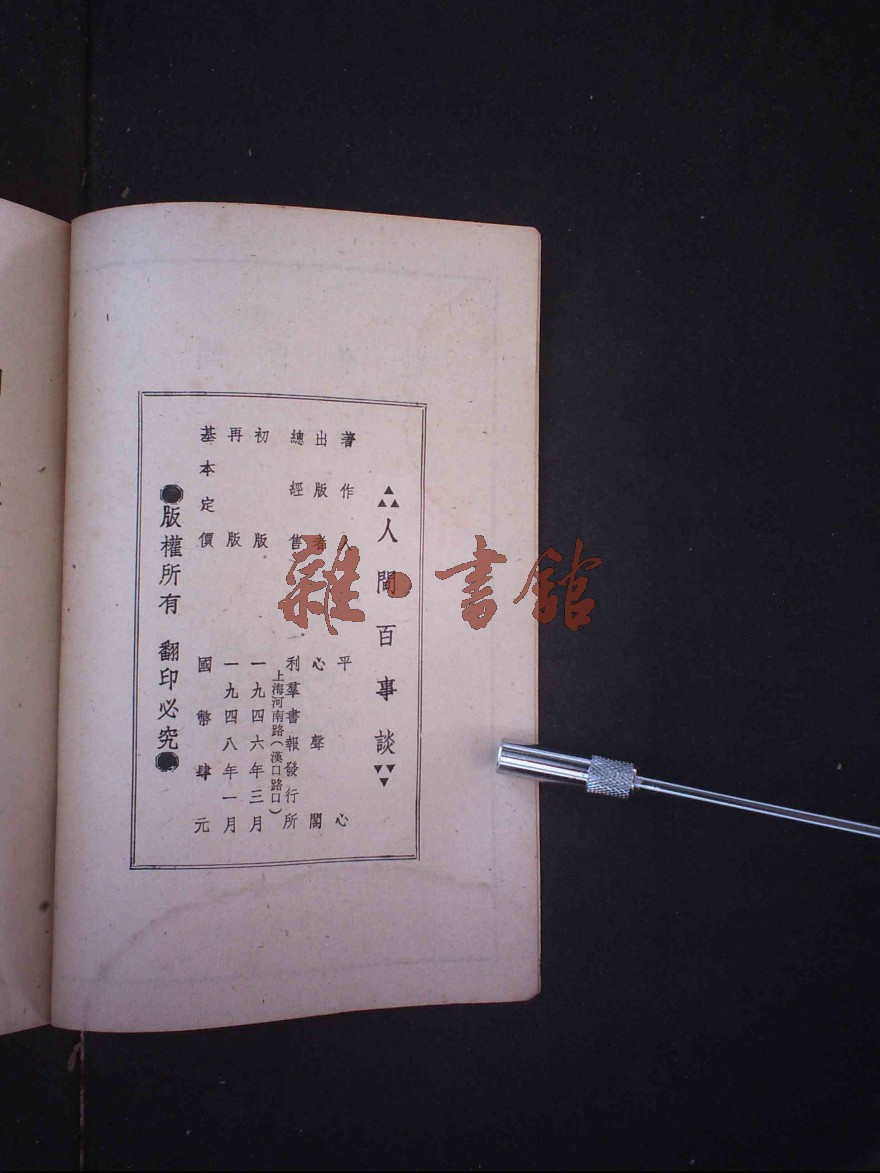 ▲▲▲人間百事談▼▼▼
著作人 平心
出版者 心聲閣
總經售 利羣書報發行所
上海河南路(漢口路口)
初版 一九四六年三月
再版 一九四八年一月
基本定價 國幣肆元
●版權所有 翻印必究●
雜·書館